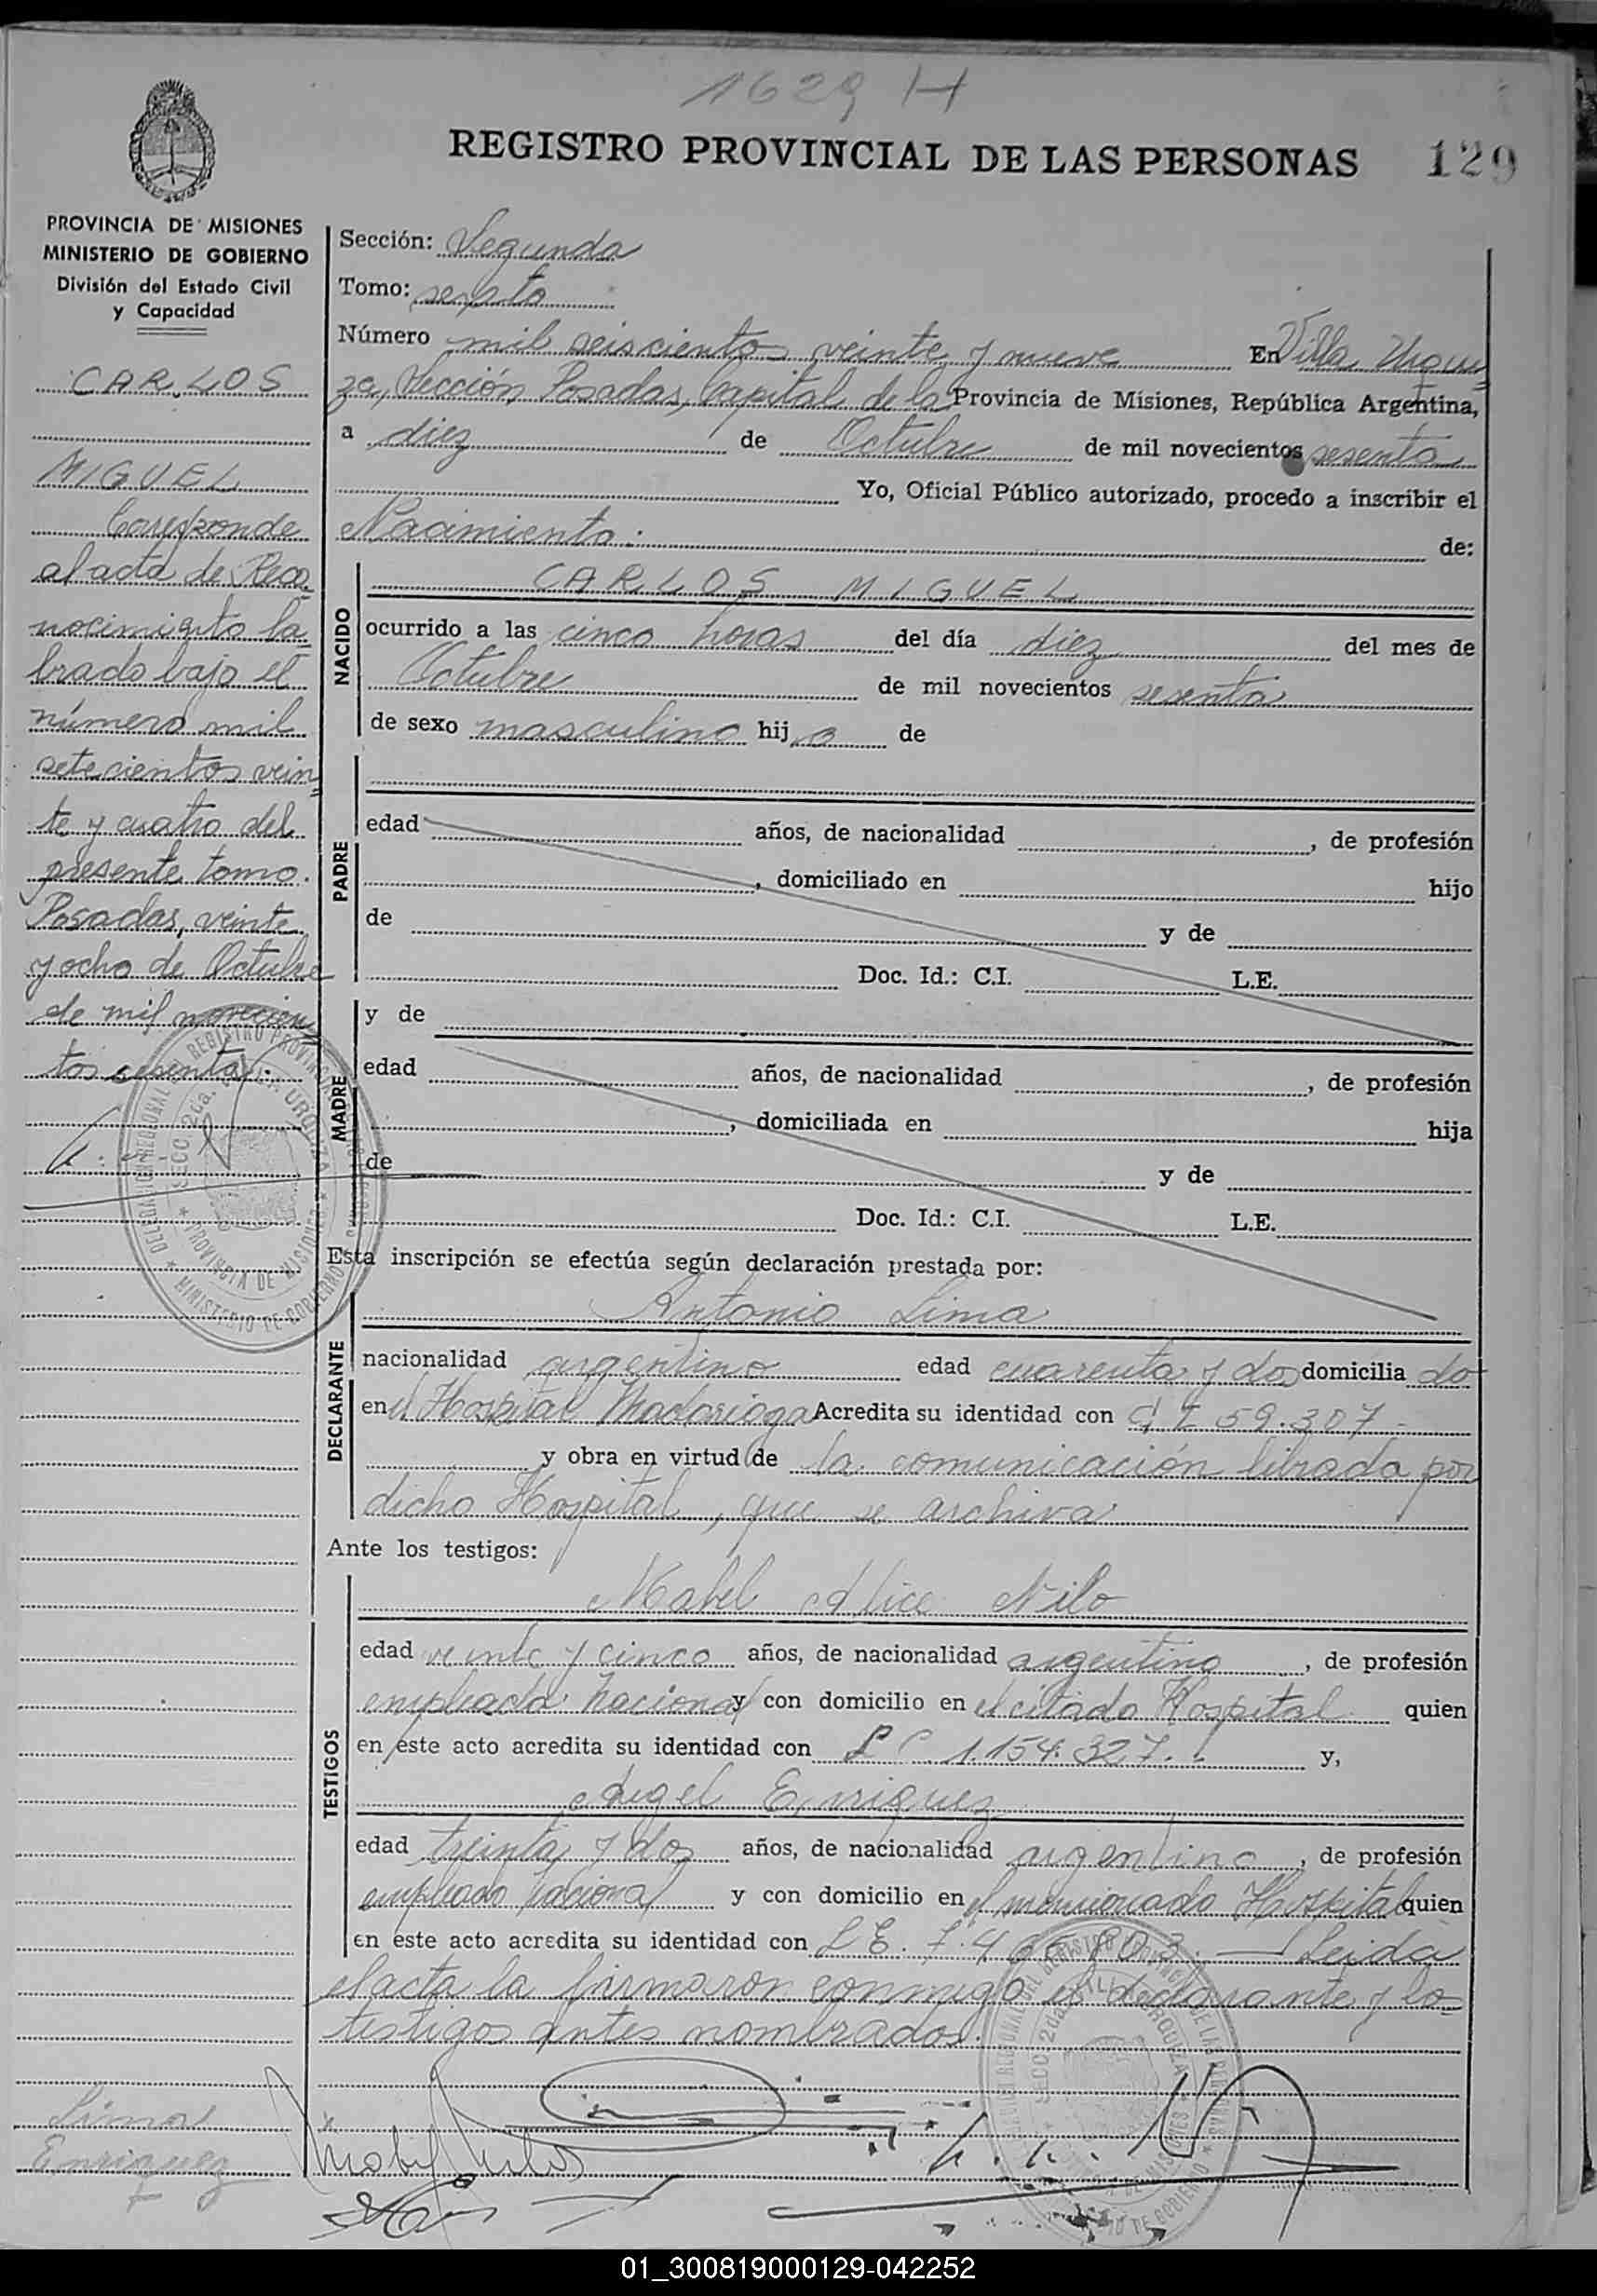 1629 H
REGISTRO PROVINCIAL DE LAS PERSONAS 129
PROVINCIA DE MISIONES
MINISTERIO DE GOBIERNO
División del Estado Civil
y Capacidad
CARLOS
MIGUEL
Corresponde
al acta de Reco
nocimiento la
brado bajo el
número mil
setecientos vein
te y cuatro del
presente tomo.
Posadas, veinte
y ocho de Octubre
de mil novecien
tos sesenta.
Sección: Segunda
Tomo: sexto
Número mil seiscientos veinte y nueve En Villa Urqui
za, Sección Posadas, Capital de la Provincia de Misiones, República Argentina,
a diez de Octubre de mil novecientos sesenta
Yo, Oficial Público autorizado, procedo a inscribir el
Nacimiento: de:
NACIDO
CARLOS MIGUEL
ocurrido a las cinco horas del día diez del mes de
Octubre de mil novecientos sesenta
de sexo masculino hijo de
PADRE
edad años, de nacionalidad , de profesión
, domiciliado en hijo
de y de
Doc. Id.: C.I. L.E.
MADRE
y de
edad años, de nacionalidad , de profesión
, domiciliada en hija
de y de
Doc. Id.: C.I. L.E.
Esta inscripción se efectúa según declaración prestada por:
DECLARANTE
Antonio Lima
nacionalidad argentino edad cuarenta y dos domicilia do
en el Hospital Madariaga Acredita su identidad con C I 59.307.-
y obra en virtud de la comunicación librada por
dicho Hospital, que se archiva
Ante los testigos:
TESTIGOS
Mabel Alice Nilo
edad veinte y cinco años, de nacionalidad argentino , de profesión
empleada Nacional y con domicilio en el citado Hospital quien
en este acto acredita su identidad con L C 1.154.327.- y,
Angel Enriquez
edad treinta y dos años, de nacionalidad argentino , de profesión
empleado Nacional y con domicilio en el mencionado Hospital quien
en este acto acredita su identidad con L E. 7.466.803.- Leida
el acta la firmaron conmigo el declarante y lo
testigos antes nombrados.
Lima
Enriquez
01_300819000129-042252